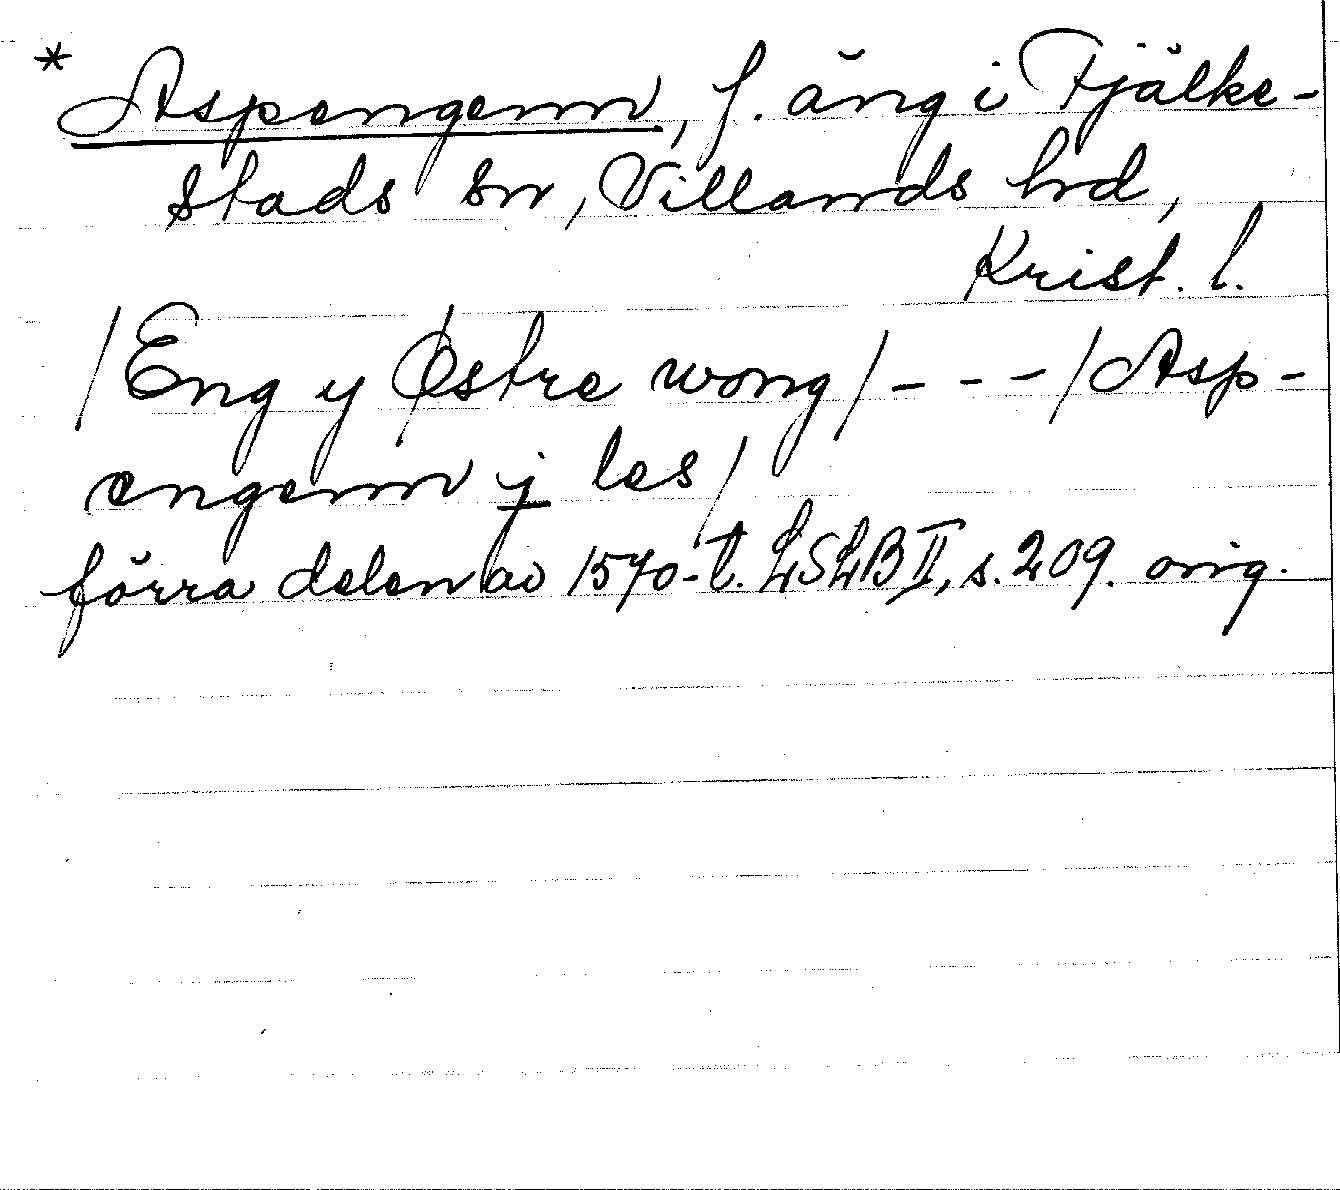 * Aspengenn, f. äng i Fjälke-
stads sn, Villands hd,
Krist. l.
/Eng y Østre wong/ - - - / Asp-
engenn j les/
förra delen av 1570-t. LSLB II, s. 209. orig.